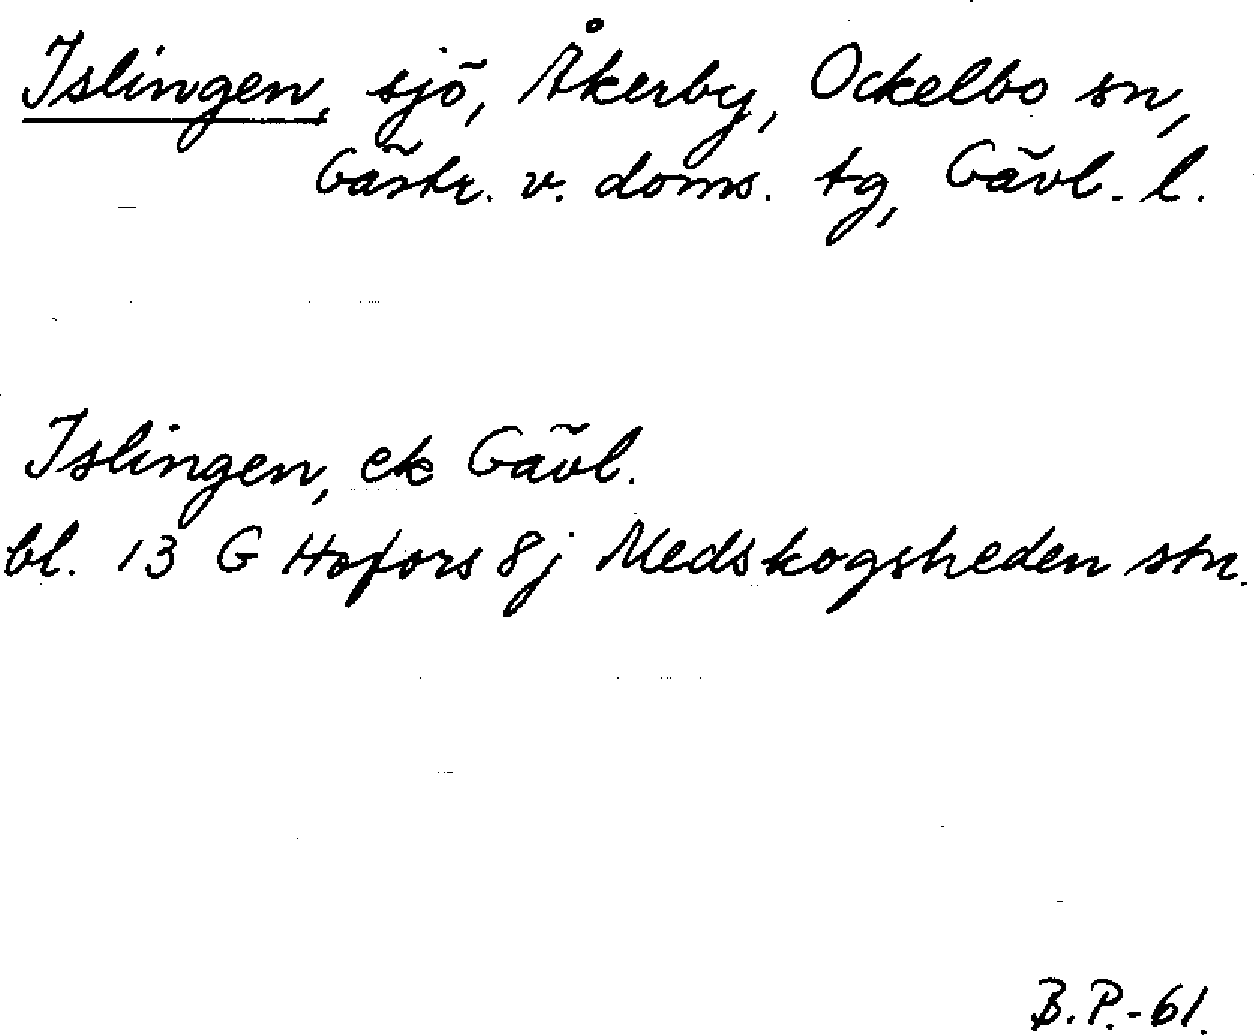 Islingen, sjö, Åkerby, Ockelbo sn,
Gästr. v. doms. tg, Gävl. l.
Islingen, ek Gävl.
bl. 13 G Hofors 8j Medskogsheden stn.
B.P.-61.